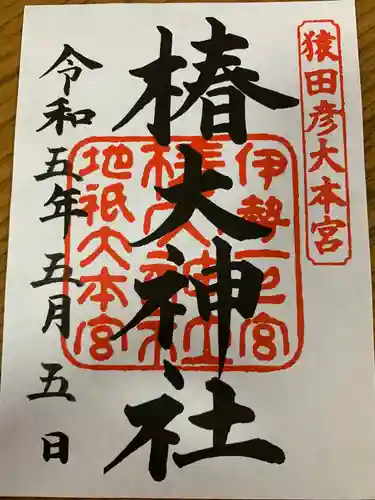 猿田彦大本宮
伊勢一之宮
椿大神社
地祇大本宮
椿大神社
令和五年五月五日